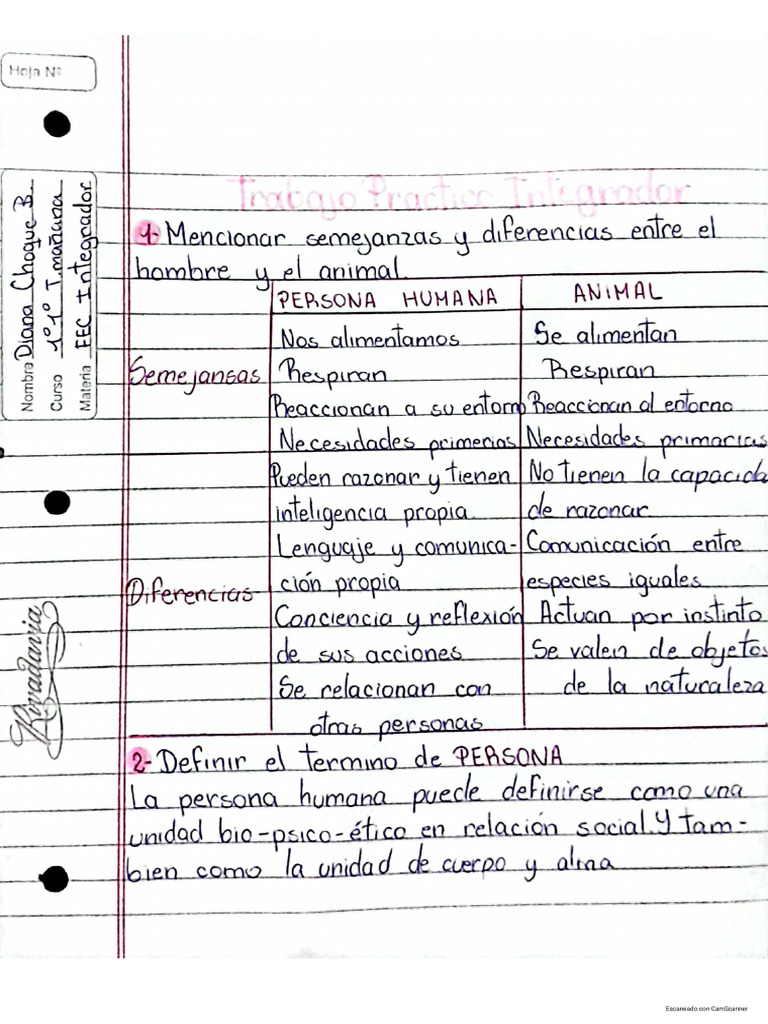 Hoja Nº
Nombre Diana Choque B.
Curso 1º1º T.mañana
Materia FEC Integrador
Rivadavia
Trabajo Practico Integrador
1- Mencionar semejanzas y diferencias entre el
hombre y el animal.
PERSONA HUMANA ANIMAL
Nos alimentamos Se alimentan
Semejansas Respiran Respiran
Reaccionan a su entorno Reaccionan al entorno
Necesidades primerias Necesidades primarias
Pueden razonar y tienen No tienen la capacida
inteligencia propia de razonar
Lenguaje y comunica- Comunicación entre
Diferencias ción propia especies iguales
Conciencia y reflexión Actuan por instinto
de sus acciones Se valen de objetos
Se relacionan con de la naturaleza
otras personas
2- Definir el termino de PERSONA
La persona humana puede definirse como una
unidad bio-psico-ético en relación social. Y tam-
bien como la unidad de cuerpo y alma
Escaneado con CamScanner